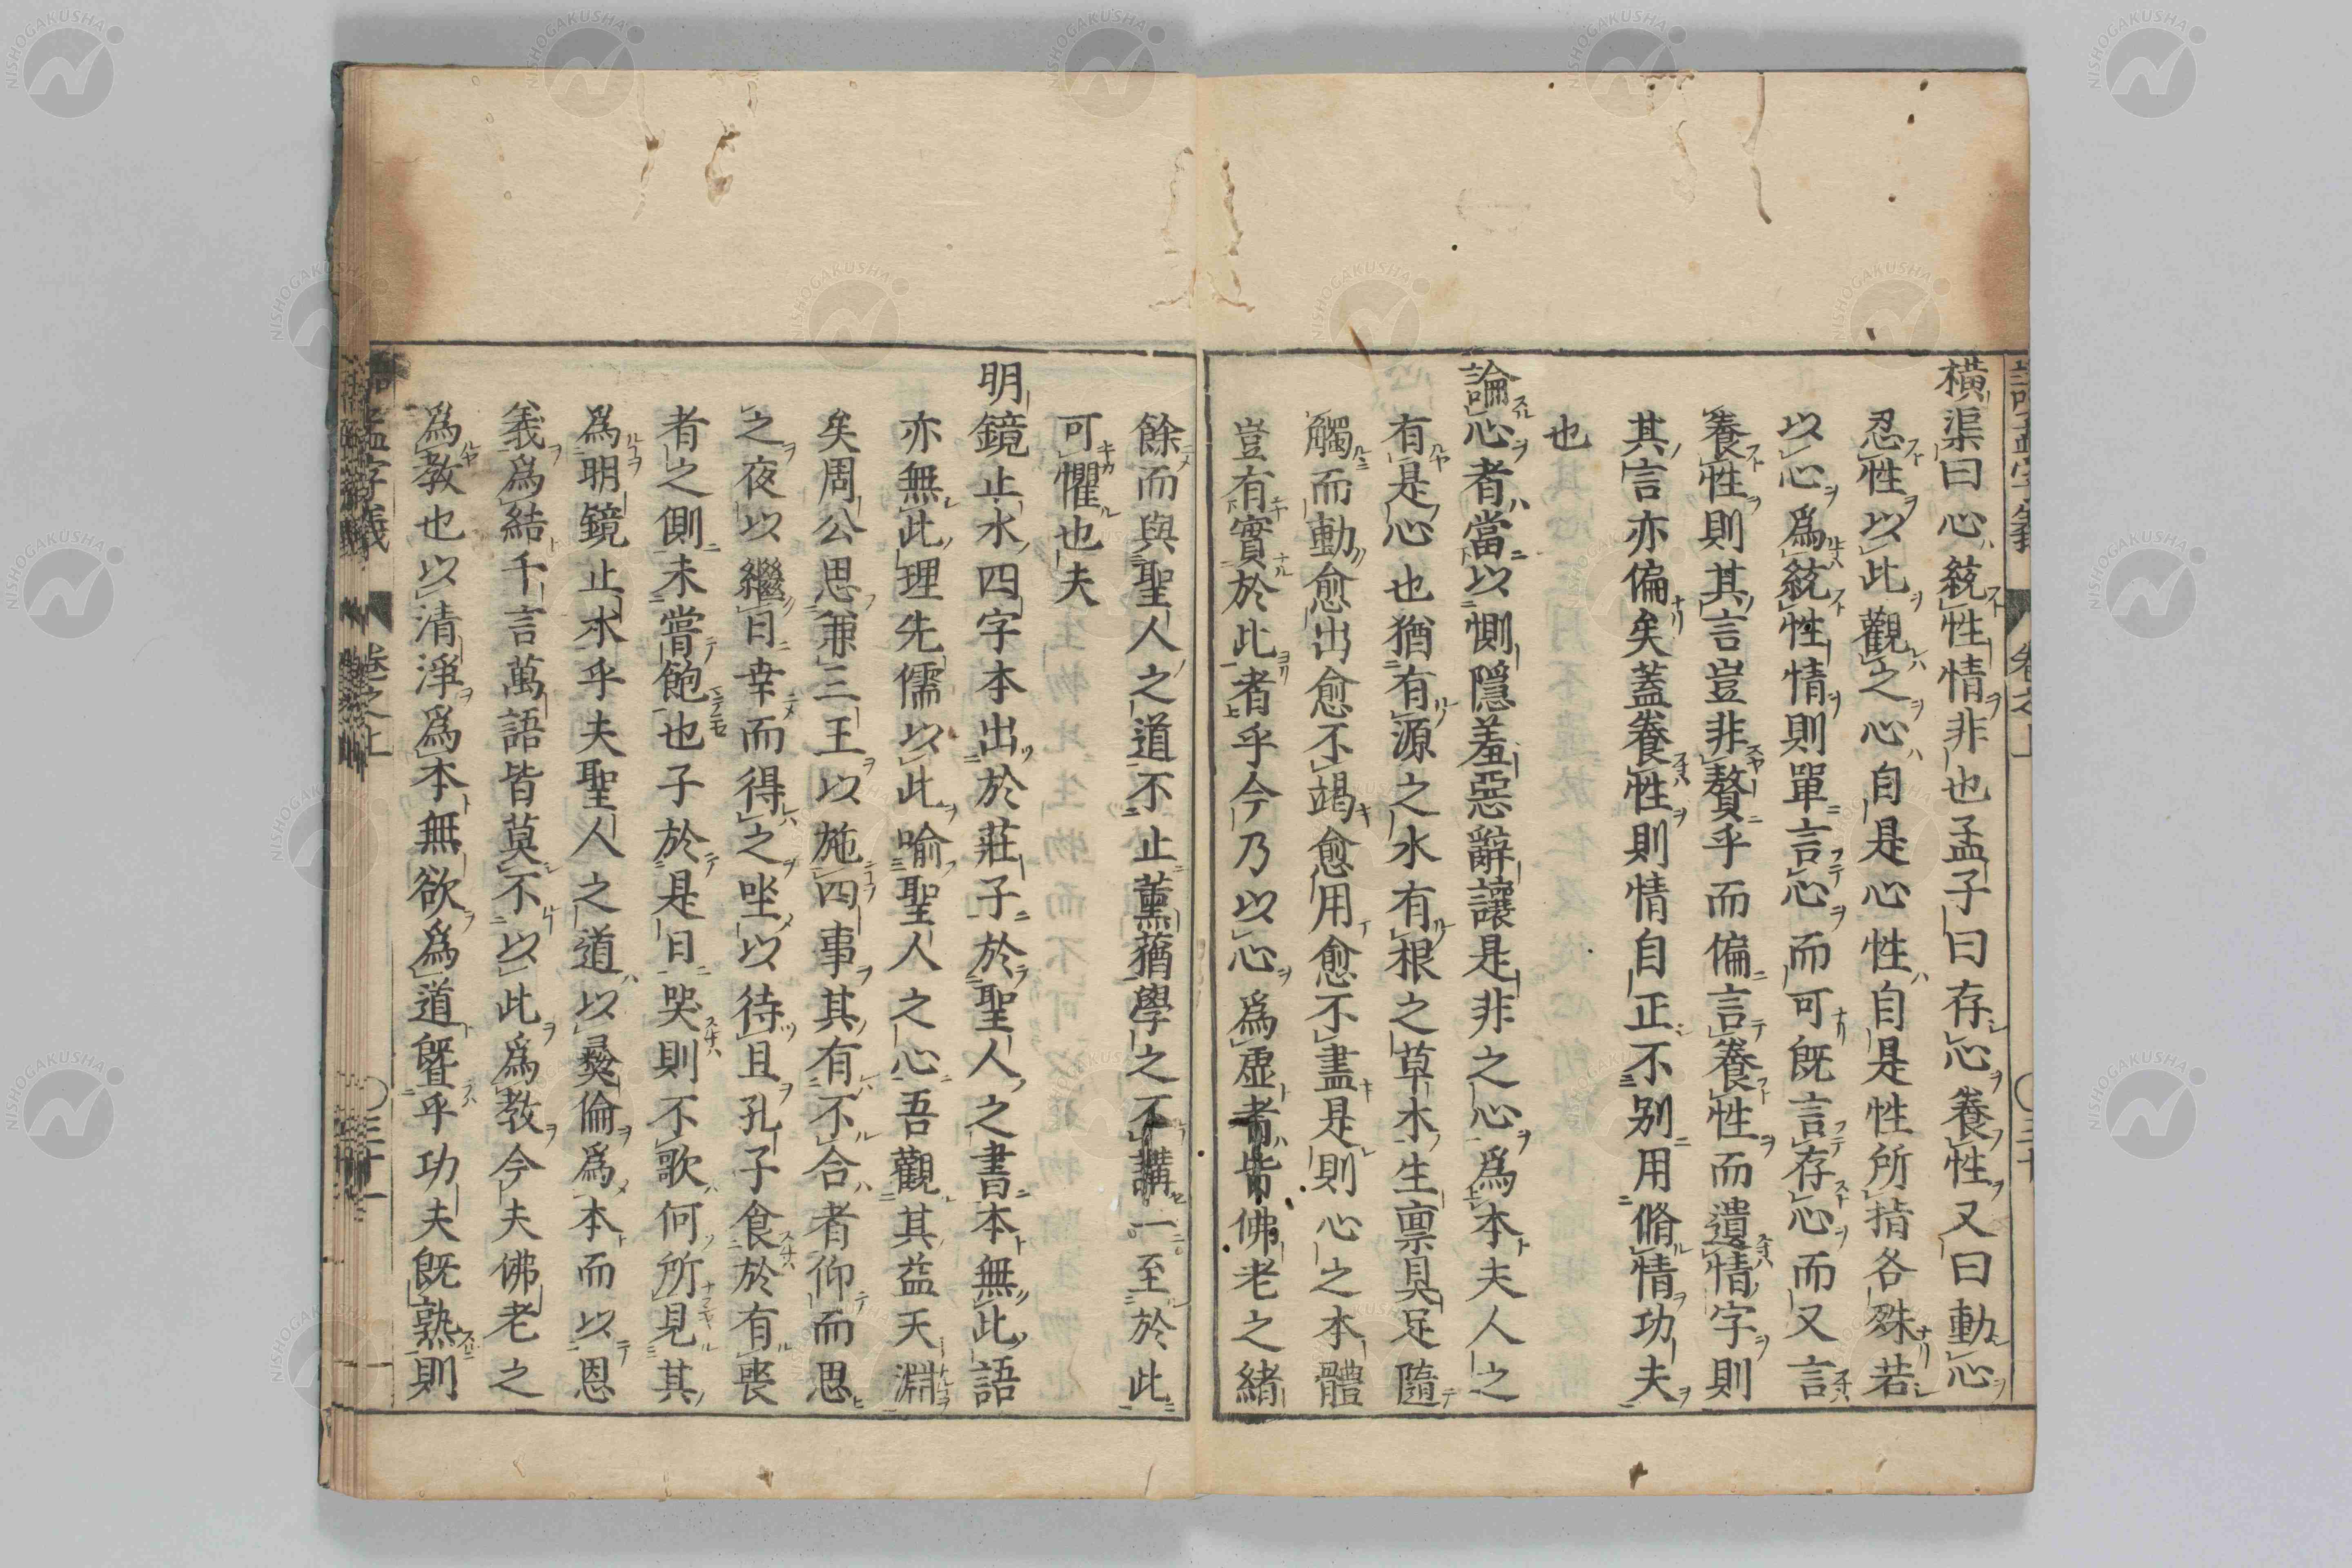 橫渠曰心統性情非也孟子曰存心養性又曰動心
忍性以此觀之心自是心性自是性所指各殊若
以心爲統性情則單言心而可旣言存心而又言
養性則其言豈非贅乎而偏言養性而遺情字則
其言亦偏矣蓋養性則情自正不別用脩情功夫
也
論心者當以惻隱羞惡辭讓是非之心爲本夫人之
有是心也猶有源之水有根之草木生禀具足隨
觸而動愈出愈不竭愈用愈不盡是則心之本體
豈有實於此者乎今乃以心爲虛者皆佛老之緒
餘而與聖人之道不止薰蕕學之不講一至於此
可懼也夫
明鏡止水四字本出於莊子於聖人之書本無此語
亦無此理先儒以此喻聖人之心吾觀其益天淵
矣周公思兼三王以施四事其有不合者仰而思
之夜以繼日幸而得之坐以待且孔子食於有喪
者之側未嘗飽也子於是日哭則不歌何所見其
爲明鏡止水乎夫聖人之道以彝倫爲本而以恩
義爲結千言萬語皆莫不以此爲教今夫佛老之
爲教也以清淨爲本無欲爲道曁乎功夫旣熟則
語孟字義 卷之上 三十一